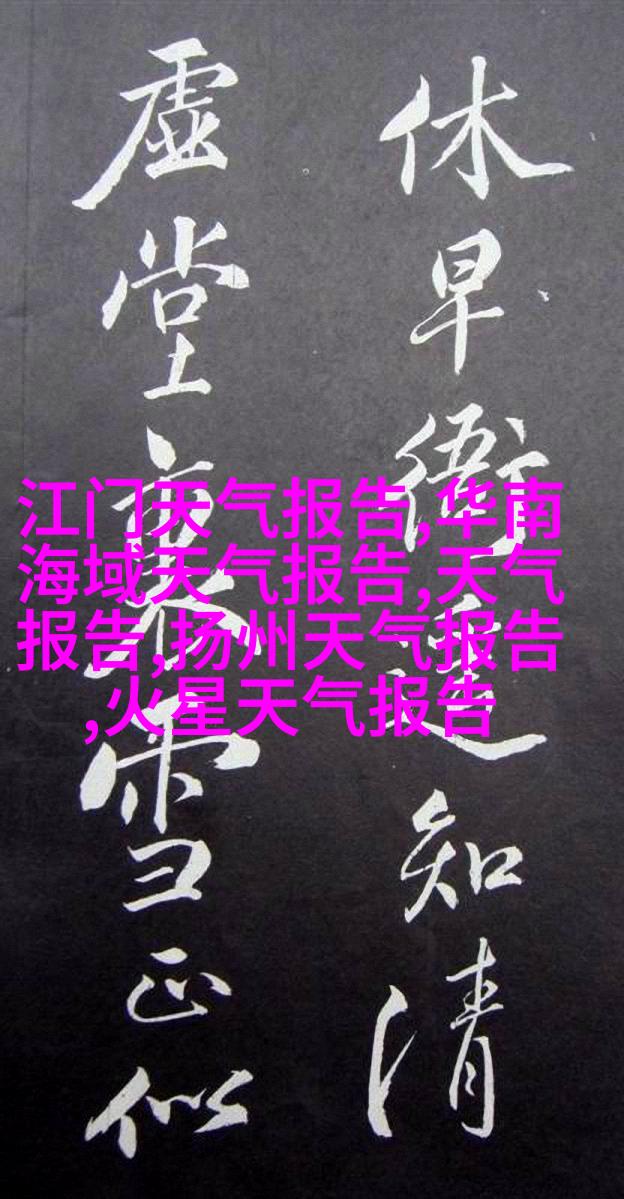 休早衙遥知清
虚堂裏雪正似
江门天气报告,华南
海域天气报告,天气
报告,扬州天气报告
,火星天气报告